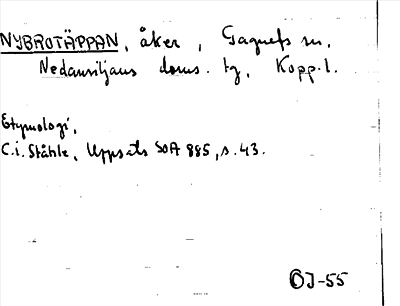 NYBROTÄPPAN, åker, Gagnefs sn.
Nedansiljans doms. tg, Kopp. l.
Etymologi,
C.i. Ståhle, Uppsats SOA 885, s. 43.
OJ-55